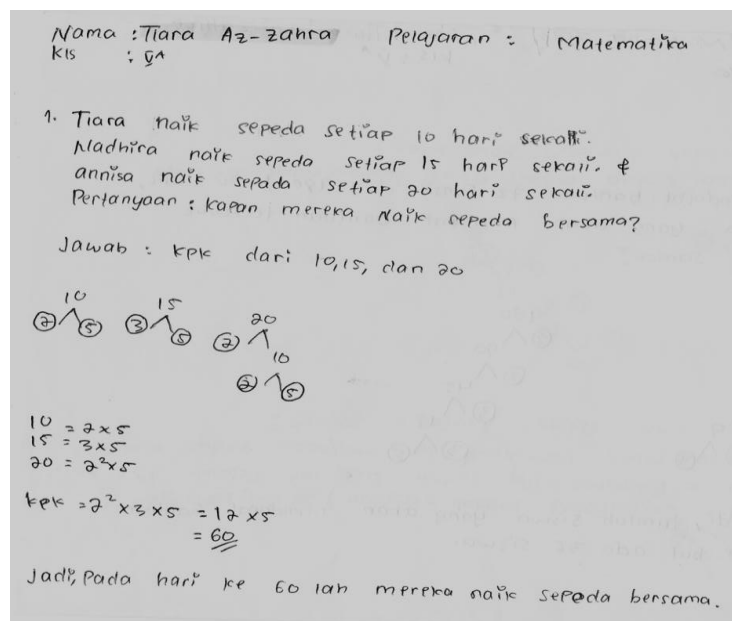 Nama : Tiara Az-zahra Pelajaran : Matematika
Kls : VA
1. Tiara naik sepeda setiap 10 hari sekali.
Nadhira naik sepeda setiap 15 hari sekali. &
annisa naik sepada setiap 20 hari sekali.
Pertanyaan : kapan mereka Naik sepeda bersama?
Jawab : KPK dari 10, 15, dan 20
10 15 20
2 5 3 5 2 10
2 5
10 = 2 x 5
15 = 3 x 5
20 = 2² x 5
kpk = 2² x 3 x 5 = 12 x 5
= 60
Jadi, pada hari ke 60 lah mereka naik sepeda bersama.